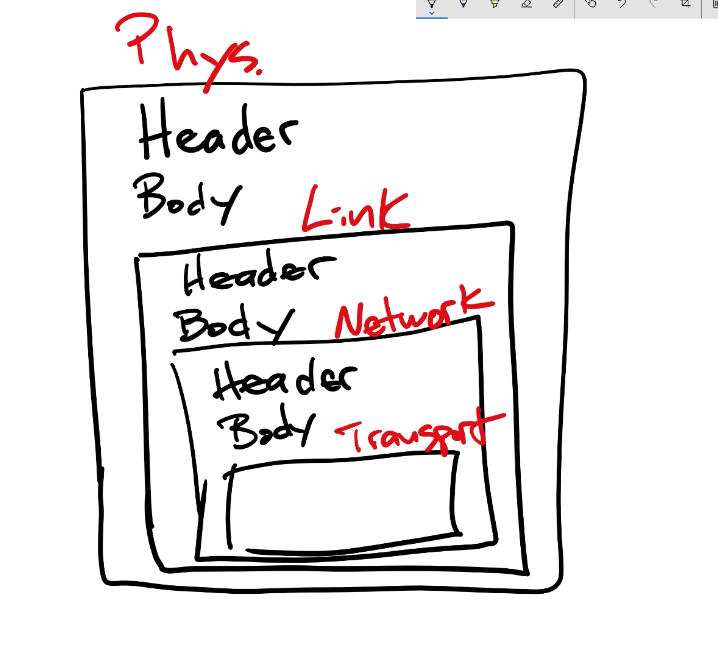 Phys.
Header
Body Link
Header
Body Network
Header
Body Transport